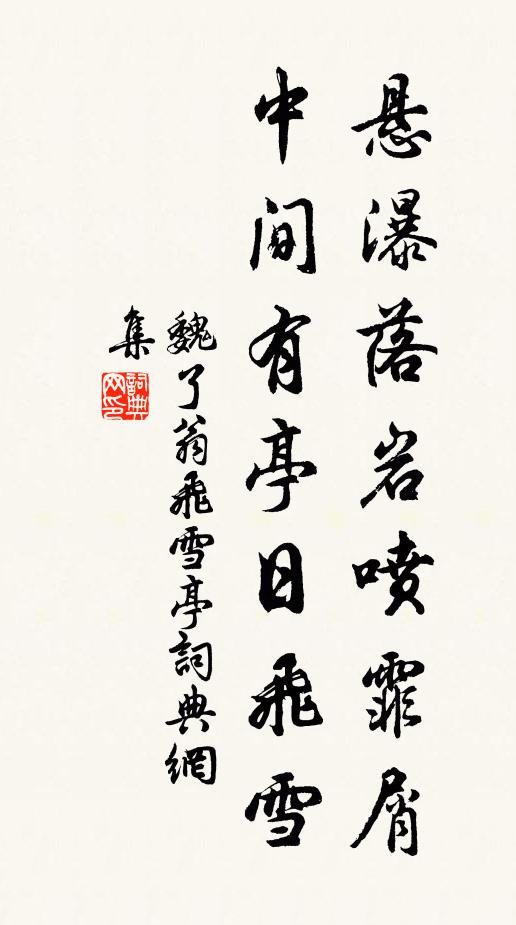 悬瀑落岩喷霏屑
中间有亭日飛雪
魏了翁飛雪亭詞典網
集
詞典
网印